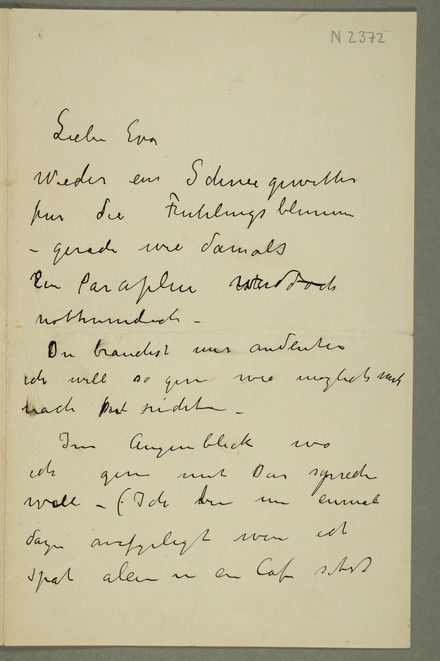 N 2372
Liebe Eva
Wieder ein Schneegewitter
für die Frühlingsblumen
– gerade wie damals
Ein Paraplui doch
nothwendich –
Du brauchst nur andeuten
ich will so gern wie möglich mich
nach Dir richten –
Im Augenblick wo
ich gern mit Dir sprechen
will – (Ich bin nun einmal
dazu aufgelegt wenn ich
spät allein in ein Cafe